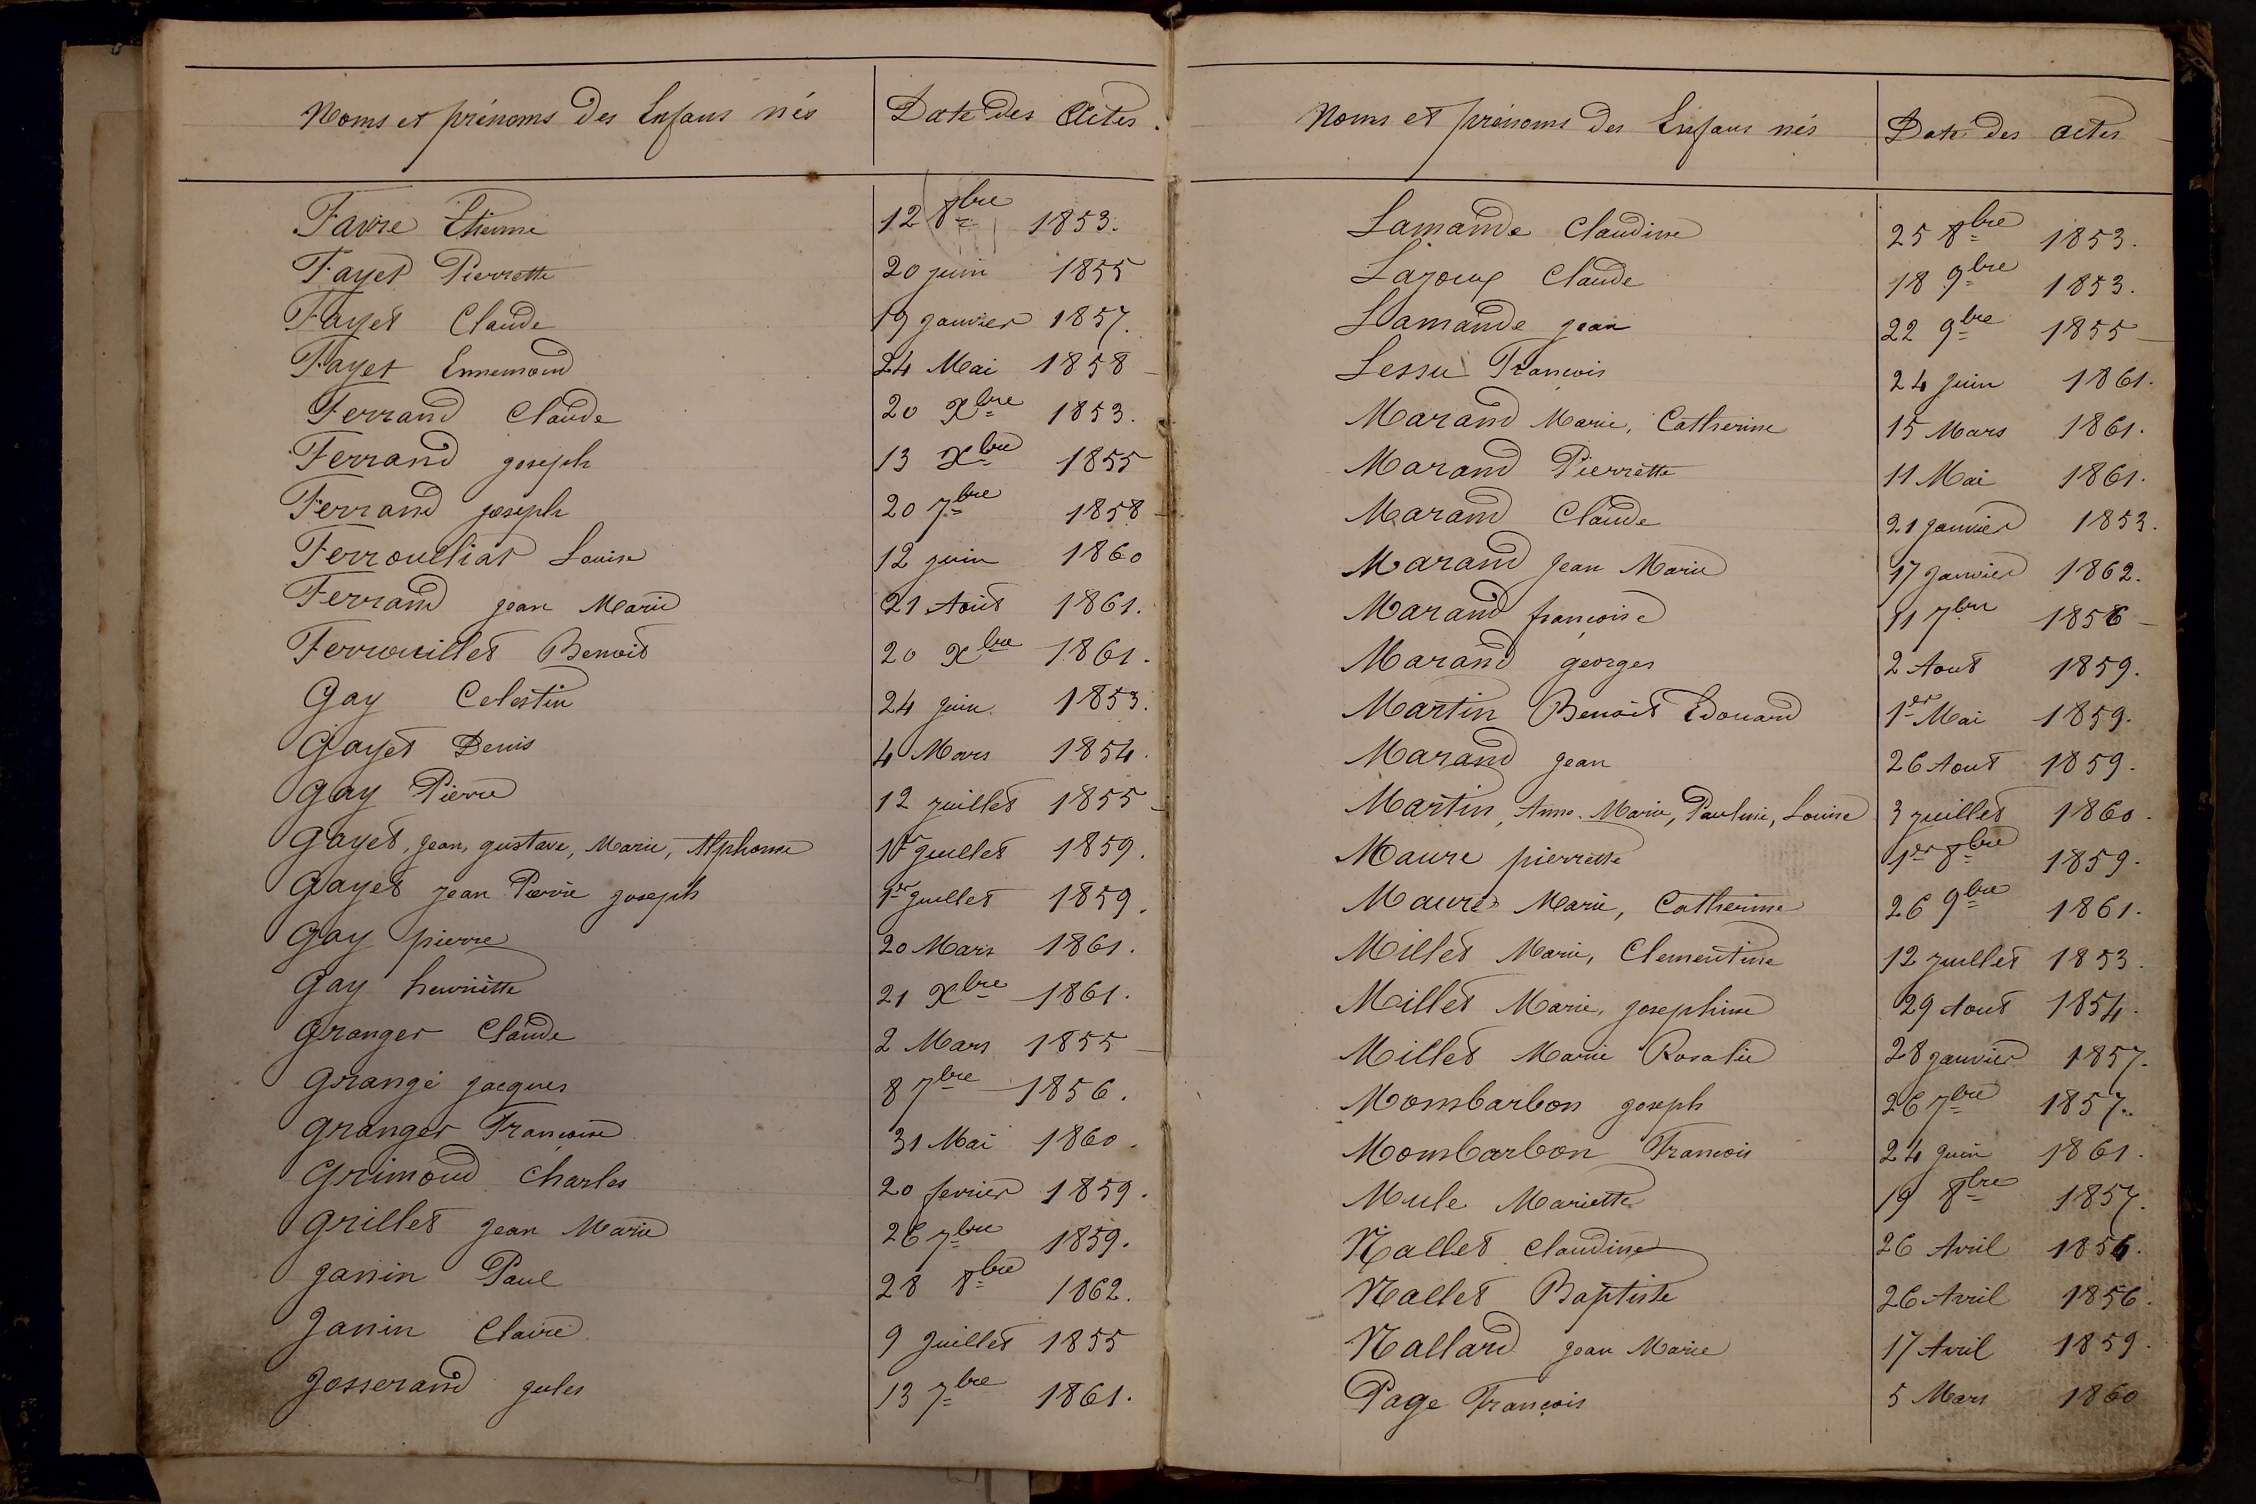 Noms et prénoms des Enfans nés Date des Actes.
Favre Etienne 12 8bre 1853.
Fayet Pierrette 20 juin 1855
Fayet Claude 19 janvier 1857.
Fayet Ennemond 24 Mai 1858
Ferrand Claude 20 Xbre 1853.
Ferrand joseph 13 Xbre 1855
Ferrand joseph 20 7bre 1858
Ferroulliat Louise 12 juin 1860
Ferrand jean Marie 21 Août 1861.
Ferrouillet Benoit 20 Xbre 1861.
Gay Celestin 24 juin 1853.
Gayet Denis 4 Mars 1854.
Gay Pierre 12 juillet 1855
Gayet, jean, gustave, Marie, Alphonse 1er juillet 1859.
Gayet jean Pierre joseph 1er juillet 1859.
Gay pierre 20 Mars 1861.
Gay henriette 21 Xbre 1861.
Granger Claude 2 Mars 1855
Grangé jacques 8 7bre 1856.
Granger Françoise 31 Mai 1860.
Grimoud Charles 20 fevrier 1859.
Grillet jean Marie 26 7bre 1859.
Janin Paul 28 8bre 1862.
Janin Claire 9 juillet 1855
Josserand jules 13 7bre 1861.
Noms et prénoms des Enfans nés Date des actes
Lamande Claudine 25 8bre 1853.
Lajoux Claude 18 9bre 1853.
Lamande jean 22 9bre 1855
Lessu Francois 24 juin 1861.
Marand Marie, Catherine 15 Mars 1861.
Marand Pierrette 11 Mai 1861.
Marand Claude 21 janvier 1853.
Marand jean Marie 17 janvier 1862.
Marand françoise 11 7bre 1856
Marand georges 2 Aout 1859.
Martin Benoit Edouard 1er Mai 1859.
Marand jean 26 Aout 1859.
Martin, Anne. Marie, Pauline, Louise 3 juillet 1860.
Maure pierrette 1er 8bre 1859.
Maure Marie, Catherine 26 9bre 1861.
Millet Marie, Clementine 12 juillet 1853.
Millet Marie, josephine 29 Aout 1854.
Millet Marie Rosalie 28 janvier 1857.
Mombarbon joseph 26 7bre 1857.
Mombarbon Francois 24 juin 1861.
Mule Mariette 19 8bre 1857.
Nallet Claudine 26 Avril 1856.
Nallet Baptiste 26 Avril 1856.
Nallard jean Marie 17 Avril 1859.
Page François 5 Mars 1860